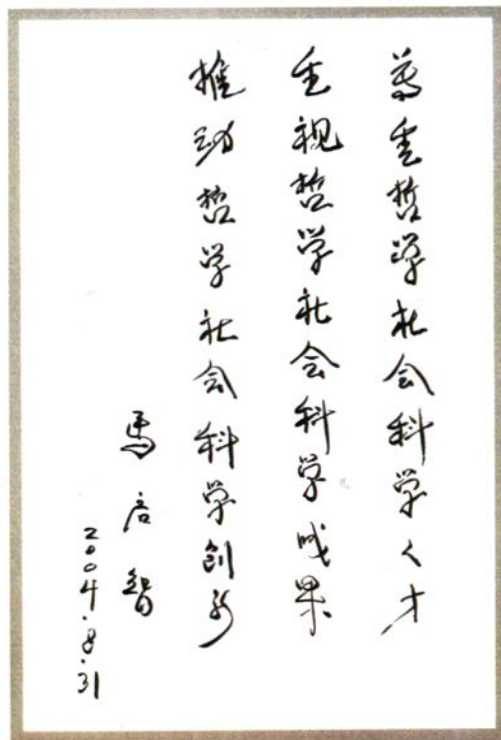 尊重哲学社会科学人才
重视哲学社会科学成果
推动哲学社会科学创新
马启智
2004.8.31